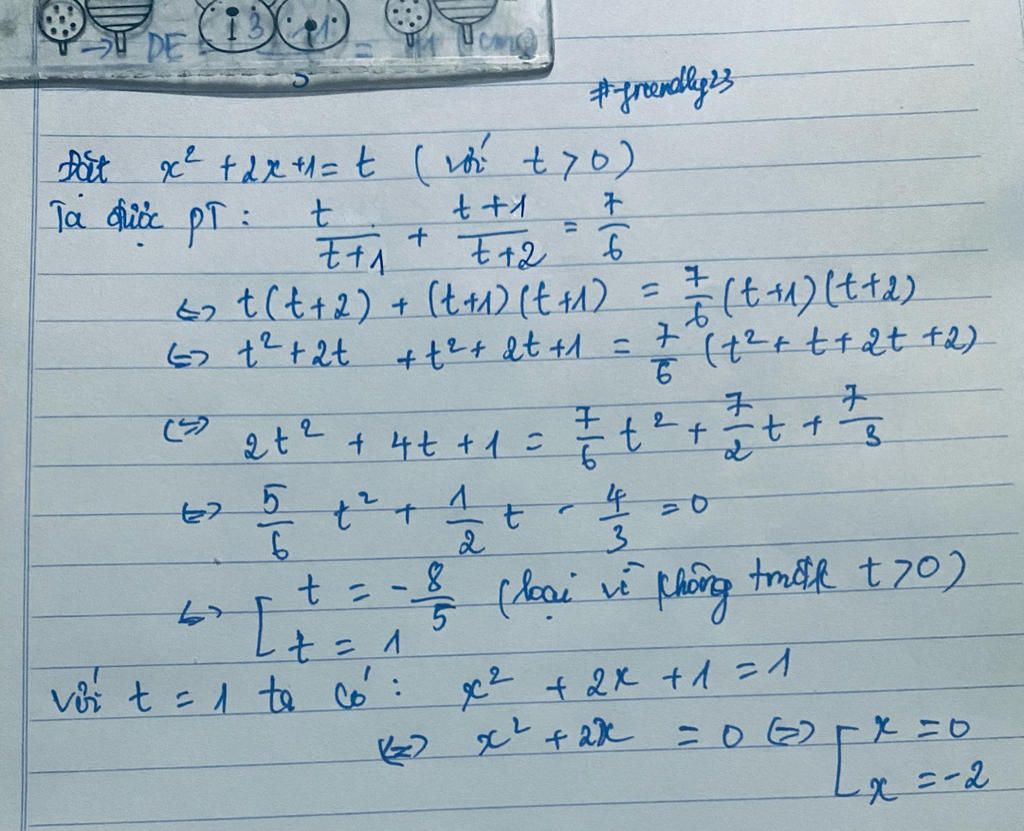 → DE = 3 = (cm)
#friendly23
Đặt x² + 2x + 1 = t ( với t > 0 )
Ta được PT : t/(t+1) + (t+1)/(t+2) = 7/6
<=> t(t+2) + (t+1)(t+1) = 7/6 (t+1)(t+2)
<=> t² + 2t + t² + 2t + 1 = 7/6 (t² + t + 2t + 2)
<=> 2t² + 4t + 1 = 7/6 t² + 7/2 t + 7/3
<=> 5/6 t² + 1/2 t - 4/3 = 0
<=> [ t = -8/5 (loại vì không tmđk t > 0)
t = 1
với t = 1 ta có : x² + 2x + 1 = 1
<=> x² + 2x = 0 <=> [ x = 0
x = -2